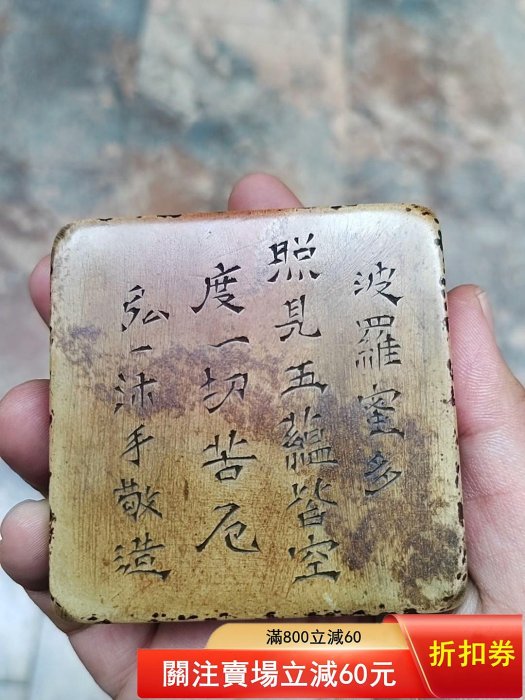 波羅蜜多
照見五蘊皆空
度一切苦厄
弘一沐手敬造
滿800立減60
關注賣場立減60元
折扣券